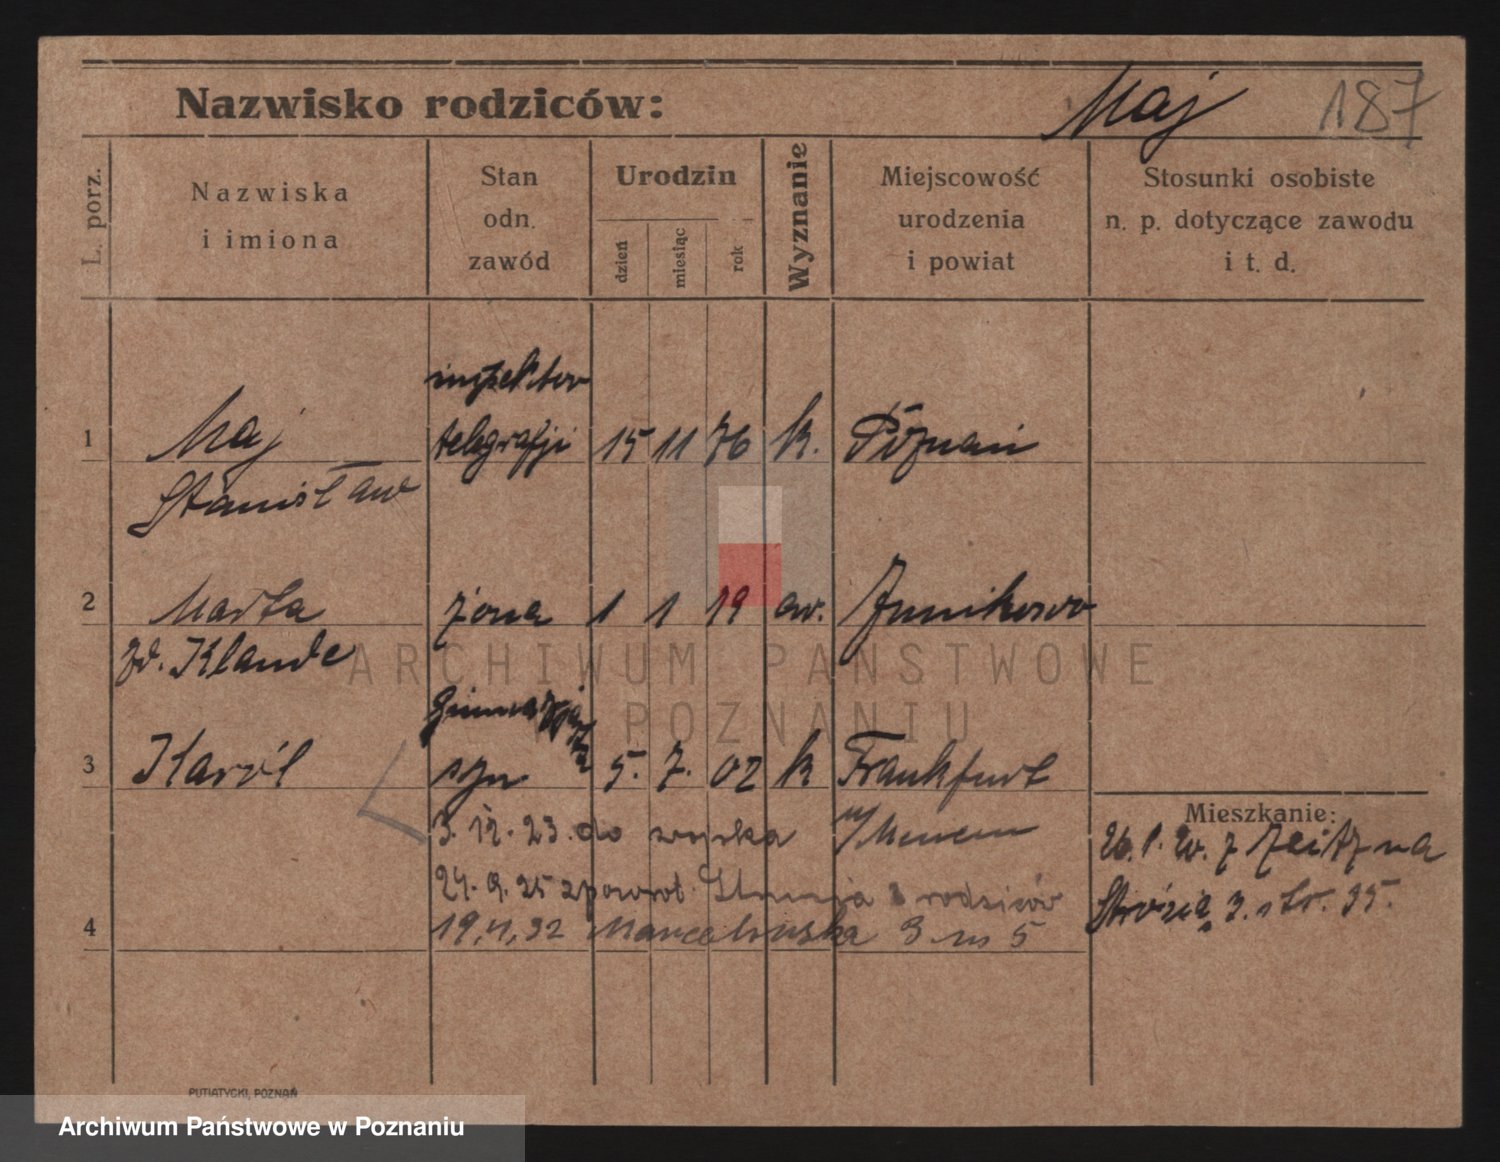 Nazwisko rodziców: Maj 187
L. porz.
Nazwiska
i imiona
Stan
odn.
zawód
Urodzin
dzień
miesiąc
rok
Wyznanie
Miejscowość
urodzenia
i powiat
Stosunki osobiste
n. p. dotyczące zawodu
i t. d.
inspektor
1 Maj telegrafji 15 11 76 k. Poznań
Stanisław
2 Marta żona 1 1 79 ew. Junikowo
zd. Klaude
gimnazjasta
3 Karól syn 5. 7. 02 k Frankfurt
n/Menem
3. 12. 23. do wojska
24. 9. 25 z powrot. rodziców
4 19, 11, 32 Marcelińska 3 m 5
Mieszkanie:
26. 1. 20. z Zeitz na
Strózia 3. str. 35.
PUTIATYCKI, POZNAŃ
ARCHIWUM PAŃSTWOWE
W POZNANIU
Archiwum Państwowe w Poznaniu